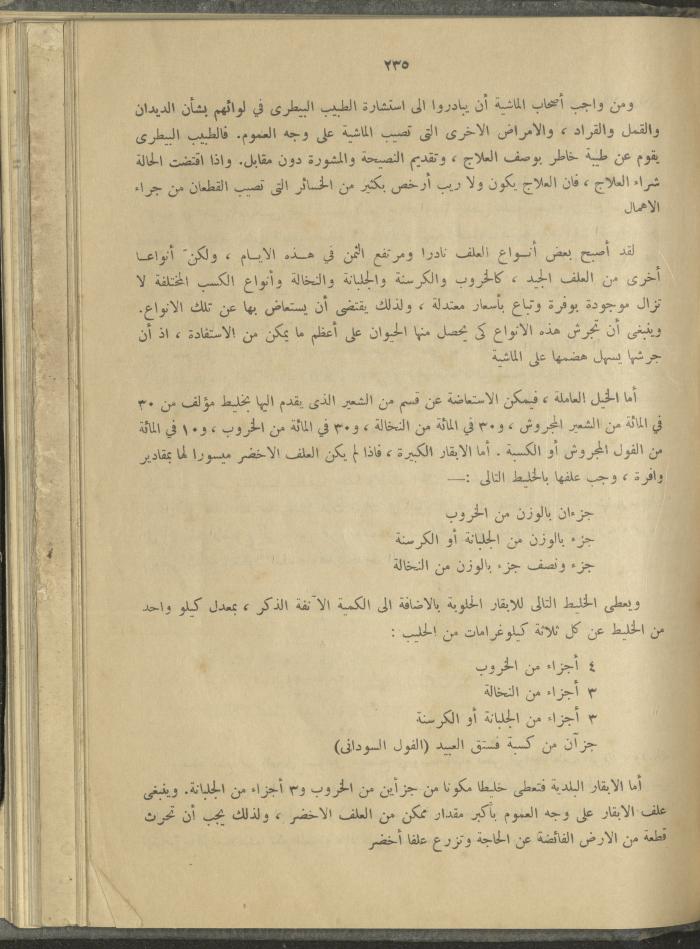 ٢٣٥
ومن واجب أصحاب الماشية أن يبادروا الى استشارة الطبيب البيطرى في لوائهم بشأن الديدان
والقمل والقراد ، والامراض الاخرى التى تصيب الماشية على وجه العموم. فالطبيب البيطرى
يقوم عن طيبة خاطر بوصف العلاج ، وتقديم النصيحة والمشورة دون مقابل. واذا اقتضت الحالة
شراء العلاج ، فان العلاج يكون ولا ريب أرخص بكثير من الخسائر التى تصيب القطعان من جراء
الاهمال
لقد أصبح بعض أنواع العلف نادرا ومرتفع الثمن في هذه الايام ، ولكنّ أنواعا
أخرى من العلف الجيد ، كالخروب والكرسنة والجلبانة والنخالة وأنواع الكسب المختلفة لا
تزال موجودة بوفرة وتباع بأسعار معتدلة ، ولذلك يقتضى أن يستعاض بها عن تلك الانواع.
وينبغى أن تجرش هذه الانواع كى يحصل منها الحيوان على أعظم ما يمكن من الاستفادة ، اذ أن
جرشها يسهل هضمها على الماشية
أما الخيل العاملة ، فيمكن الاستعاضة عن قسم من الشعير الذى يقدم اليها بخليط مؤلف من ٣٠
في المائة من الشعير المجروش ، و٣٠ في المائة من النخالة ، و٣٠ في المائة من الخروب ، و١٠ في المائة
من الفول المجروش أو الكسبة . أما الابقار الكبيرة ، فاذا لم يكن العلف الاخضر ميسورا لها بمقادير
وافرة ، وجب علفها بالخليط التالى :—
جزءان بالوزن من الخروب
جزء بالوزن من الجلبانة أو الكرسنة
جزء ونصف جزء بالوزن من النخالة
ويعطى الخليط التالى للابقار الحلوبة بالاضافة الى الكمية الآنفة الذكر ، بمعدل كيلو واحد
من الخليط عن كل ثلاثة كيلوغرامات من الحليب :
٤ أجزاء من الخروب
٣ أجزاء من النخالة
٣ أجزاء من الجلبانة أو الكرسنة
جزآن من كسبة فستق العبيد (الفول السودانى)
أما الابقار البلدية فتعطى خليطا مكونا من جزأين من الخروب و٣ أجزاء من الجلبانة. وينبغى
علف الابقار على وجه العموم بأكبر مقدار ممكن من العلف الاخضر ، ولذلك يجب أن تحرث
قطعة من الارض الفائضة عن الحاجة وتزرع علفا أخضر